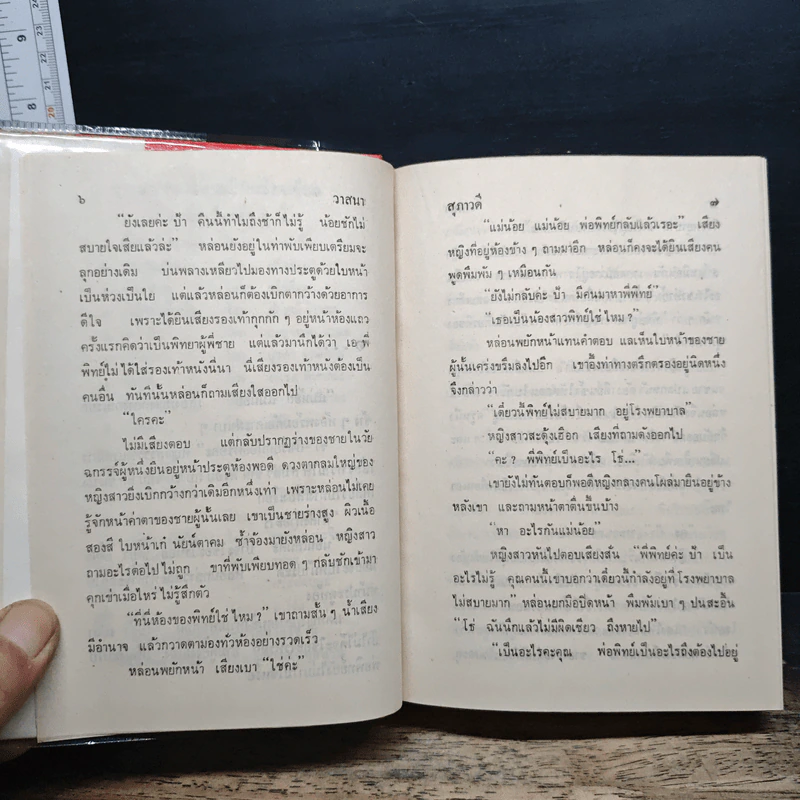 ๖ วาสนา
"ยังเลยค่ะ ป้า คืนนี้ทำไมถึงช้าก็ไม่รู้ น้อยชักไม่
สบายใจเสียแล้วล่ะ" หล่อนยังอยู่ในท่าพับเพียบเตรียมจะ
ลุกอย่างเดิม บ่นพลางเหลียวไปมองทางประตูด้วยใบหน้า
เป็นห่วงเป็นใย แต่แล้วหล่อนก็ต้องเบิกตากว้างด้วยอาการ
ดีใจ เพราะได้ยินเสียงรองเท้ากุกกัก ๆ อยู่หน้าห้องแถว
ครั้งแรกคิดว่าเป็นพิทยาผู้พี่ชาย แต่แล้วมานึกได้ว่า เอ พี่
พิทย์ไม่ได้ใส่รองเท้าหนังนี่นา นี่เสียงรองเท้าหนังต้องเป็น
คนอื่น ทันทีนั้นหล่อนก็ถามเสียงใสออกไป
"ใครคะ"
ไม่มีเสียงตอบ แต่กลับปรากฏร่างของชายในวัย
ฉกรรจ์ผู้หนึ่งยืนอยู่หน้าประตูห้องพอดี ดวงตากลมใหญ่ของ
หญิงสาวยิ่งเบิกกว้างกว่าเดิมอีกหนึ่งเท่า เพราะหล่อนไม่เคย
รู้จักหน้าค่าตาของชายผู้นั้นเลย เขาเป็นชายร่างสูง ผิวเนื้อ
สองสี ใบหน้าเก๋ นัยน์ตาคม ซ้ำจ้องมายังหล่อน หญิงสาว
ถามอะไรต่อไปไม่ถูก ขาที่พับเพียบทอด ๆ กลับชักเข้ามา
คุกเข่าเมื่อไหร่ ไม่รู้สึกตัว
"ที่นี่ห้องของพิทย์ใช่ไหม?" เขาถามสั้น ๆ น้ำเสียง
มีอำนาจ แล้วกวาดตามองทั่วห้องอย่างรวดเร็ว
หล่อนพยักหน้า เสียงเบา "ใช่ค่ะ"
สุภาวดี ๗
"แม่น้อย แม่น้อย พ่อพิทย์กลับแล้วเรอะ" เสียง
หญิงที่อยู่ห้องข้าง ๆ ถามมาอีก หล่อนก็คงจะได้ยินเสียงคน
พูดพึมพัม ๆ เหมือนกัน
"ยังไม่กลับค่ะ ป้า มีคนมาหาพี่พิทย์"
"เธอเป็นน้องสาวพิทย์ใช่ไหม?"
หล่อนพยักหน้าแทนคำตอบ แลเห็นใบหน้าของชาย
ผู้นั้นเคร่งขรึมลงไปอีก เขาอึ้งทำท่าตรึกตรองอยู่นิดหนึ่ง
จึงกล่าวว่า
"เดี๋ยวนี้พิทย์ไม่สบายมาก อยู่โรงพยาบาล"
หญิงสาวสะดุ้งเฮือก เสียงที่ถามดังออกไป
"คะ? พี่พิทย์เป็นอะไร โธ่..."
เขายังไม่ทันตอบก็พอดีหญิงกลางคนโผล่มายืนอยู่ข้าง
หลังเขา และถามหน้าตาตื่นขึ้นบ้าง
"หา อะไรกันแม่น้อย"
หญิงสาวหันไปตอบเสียงสั่น "พี่พิทย์ค่ะ ป้า เป็น
อะไรไม่รู้ คุณคนนี้เขาบอกว่าเดี๋ยวนี้กำลังอยู่ที่โรงพยาบาล
ไม่สบายมาก" หล่อนยกมือปิดหน้า พึมพัมเบา ๆ ปนสะอื้น
"โธ่ ฉันนึกแล้วไม่มีผิดเชียว ถึงหายไป"
"เป็นอะไรคะคุณ พ่อพิทย์เป็นอะไรถึงต้องไปอยู่